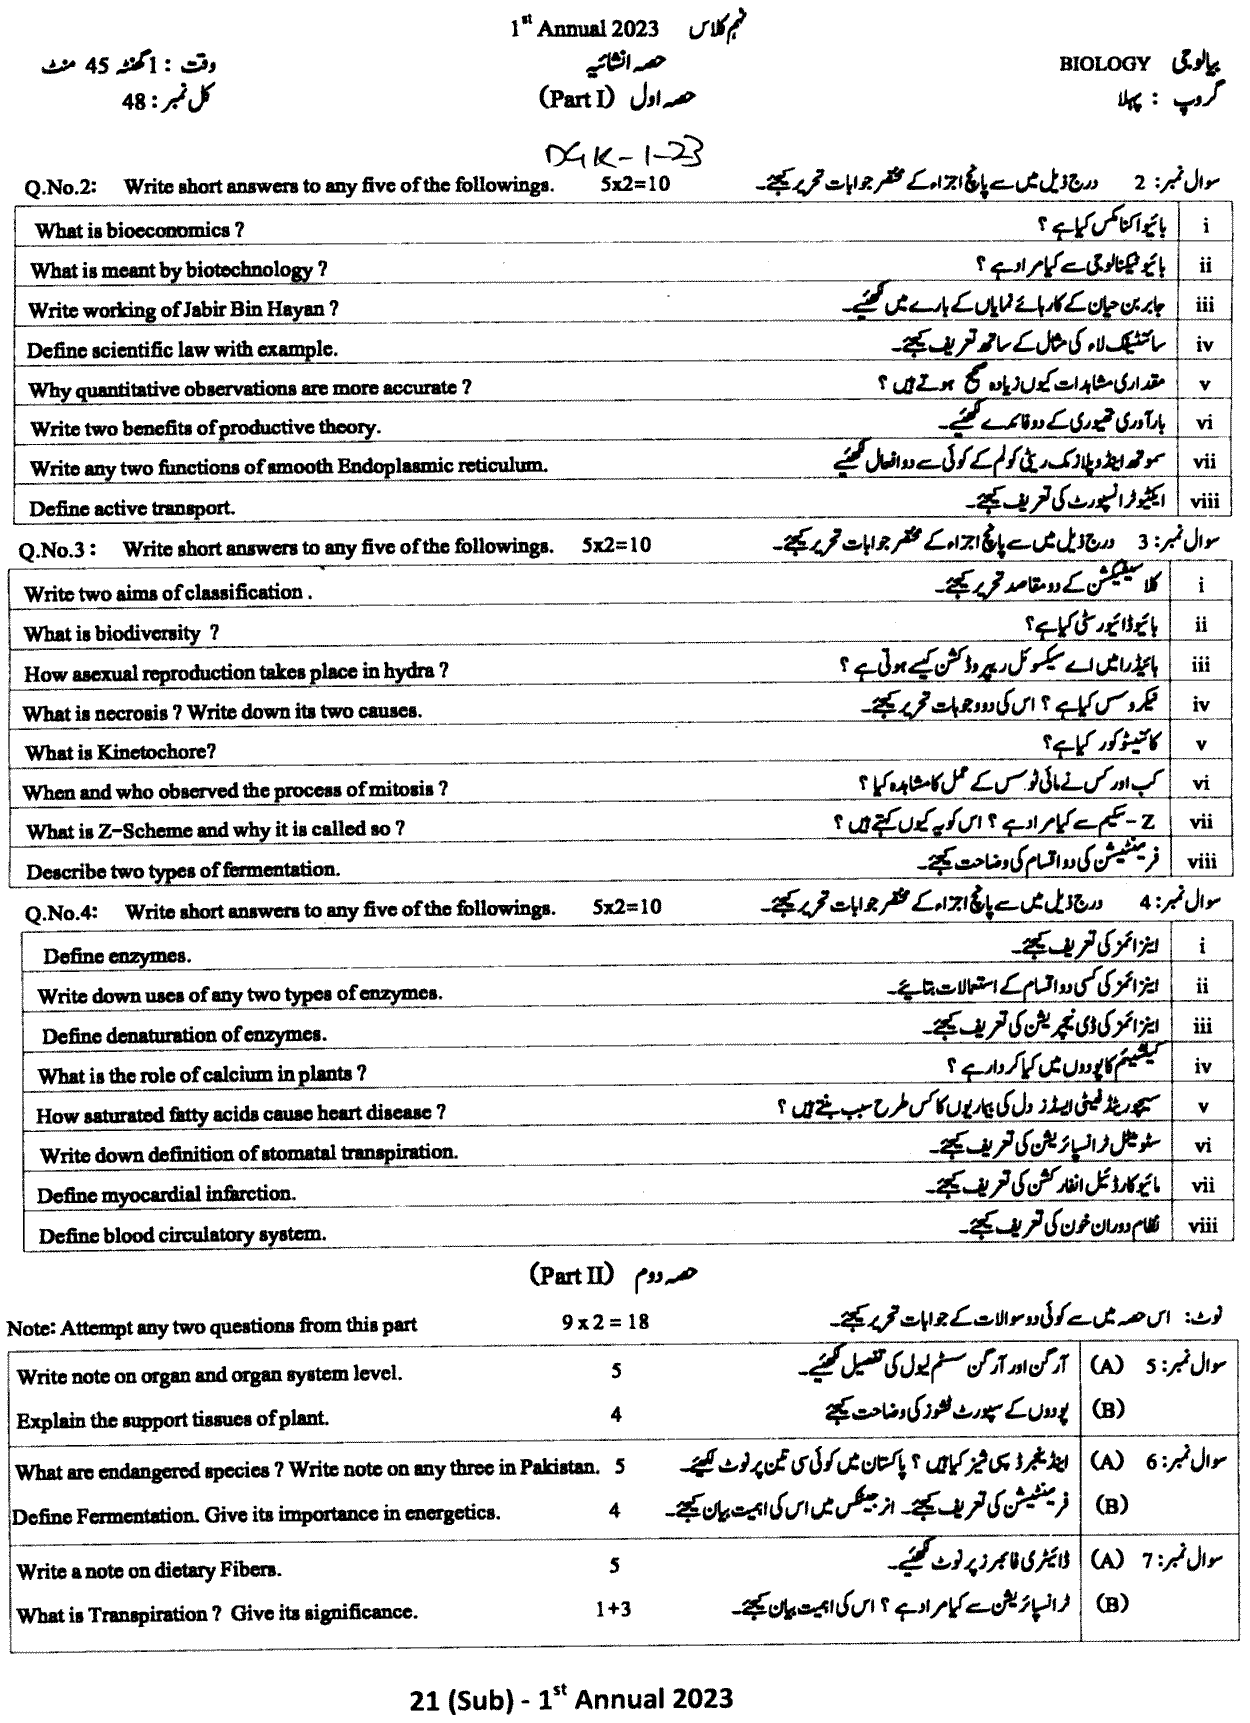 1st Annual 2023 نہم کلاس
BIOLOGY بیالوجی حصہ انشائیہ وقت : 1 گھنٹہ 45 منٹ
گروپ : پہلا حصہ اول (Part I) کل نمبر : 48
DGK-1-23
Q.No.2: Write short answers to any five of the followings. 5x2=10 سوال نمبر: 2 درج ذیل میں سے پانچ اجزاء کے مختصر جوابات تحریر کیجئے۔
What is bioeconomics ? بائیو اکنامکس کیا ہے ؟ i
What is meant by biotechnology ? بائیوٹیکنالوجی سے کیا مراد ہے ؟ ii
Write working of Jabir Bin Hayan ? جابر بن حیان کے کارہائے نمایاں کے بارے میں لکھئیے۔ iii
Define scientific law with example. سائنٹیفک لاء کی مثال کے ساتھ تعریف کیجئے۔ iv
Why quantitative observations are more accurate ? مقداری مشاہدات کیوں زیادہ صحیح ہوتے ہیں ؟ v
Write two benefits of productive theory. بارآوری تھیوری کے دو فائدے لکھئیے۔ vi
Write any two functions of smooth Endoplasmic reticulum. سموتھ اینڈوپلازمک ریٹی کولم کے کوئی سے دو افعال لکھئیے vii
Define active transport. ایکٹو ٹرانسپورٹ کی تعریف کیجئے۔ viii
Q.No.3 : Write short answers to any five of the followings. 5x2=10 سوال نمبر: 3 درج ذیل میں سے پانچ اجزاء کے مختصر جوابات تحریر کیجئے۔
Write two aims of classification . کلاسیفیکیشن کے دو مقاصد تحریر کیجئے۔ i
What is biodiversity ? بائیوڈائیورسٹی کیا ہے؟ ii
How asexual reproduction takes place in hydra ? ہائیڈرا میں اے سیکسوئل ریپروڈکشن کیسے ہوتی ہے ؟ iii
What is necrosis ? Write down its two causes. نیکروسس کیا ہے ؟ اس کی دو وجوہات تحریر کیجئے۔ iv
What is Kinetochore? کائنیٹوکور کیا ہے؟ v
When and who observed the process of mitosis ? کب اور کس نے مائی ٹوسس کے عمل کا مشاہدہ کیا ؟ vi
What is Z-Scheme and why it is called so ? Z- سکیم سے کیا مراد ہے ؟ اس کو یہ کیوں کہتے ہیں ؟ vii
Describe two types of fermentation. فرمنٹیشن کی دو اقسام کی وضاحت کیجئے۔ viii
Q.No.4: Write short answers to any five of the followings. 5x2=10 سوال نمبر: 4 درج ذیل میں سے پانچ اجزاء کے مختصر جوابات تحریر کیجئے۔
Define enzymes. اینزائمز کی تعریف کیجئے۔ i
Write down uses of any two types of enzymes. اینزائمز کی کسی دو اقسام کے استعمالات بتایئے۔ ii
Define denaturation of enzymes. اینزائمز کی ڈی نیچریشن کی تعریف کیجئے۔ iii
What is the role of calcium in plants ? کیلشیئم کا پودوں میں کیا کردار ہے ؟ iv
How saturated fatty acids cause heart disease ? سیچوریٹڈ فیٹی ایسڈز دل کی بیماریوں کا کس طرح سبب بنتے ہیں ؟ v
Write down definition of stomatal transpiration. سٹومیٹل ٹرانسپائریشن کی تعریف کیجئے۔ vi
Define myocardial infarction. مائیوکارڈیئل انفارکشن کی تعریف کیجئے۔ vii
Define blood circulatory system. نظام دوران خون کی تعریف کیجئے۔ viii
(Part II) حصہ دوم
Note: Attempt any two questions from this part 9 x 2 = 18 نوٹ: اس حصہ میں سے کوئی دو سوالات کے جوابات تحریر کیجئے۔
Write note on organ and organ system level. 5 آرگن اور آرگن سسٹم لیول کی تفصیل لکھئیے۔ (A) سوال نمبر: 5
Explain the support tissues of plant. 4 پودوں کے سپورٹ ٹشوز کی وضاحت کیجئے (B)
What are endangered species ? Write note on any three in Pakistan. 5 اینڈینجرڈ سپی شیز کیا ہیں ؟ پاکستان میں کوئی سی تین پر نوٹ لکھیئے۔ (A) سوال نمبر: 6
Define Fermentation. Give its importance in energetics. 4 فرمنٹیشن کی تعریف کیجئے۔ انرجیٹکس میں اس کی اہمیت بیان کیجئے۔ (B)
Write a note on dietary Fibers. 5 ڈائیٹری فائبرز پر نوٹ لکھئیے۔ (A) سوال نمبر: 7
What is Transpiration ? Give its significance. 1+3 ٹرانسپائریشن سے کیا مراد ہے ؟ اس کی اہمیت بیان کیجئے۔ (B)
21 (Sub) - 1st Annual 2023